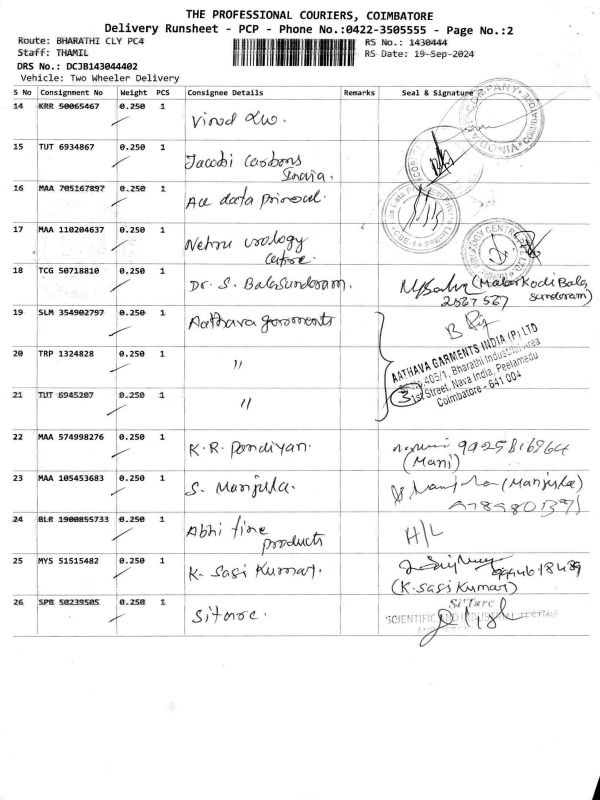 THE PROFESSIONAL COURIERS, COIMBATORE
Delivery Runsheet - PCP - Phone No.:0422-3505555 - Page No.:2
Route: BHARATHI CLY PC4
RS No.: 1430444
Staff: THAMIL
RS Date: 19-Sep-2024
DRS No.: DCJB143044402
Vehicle: Two Wheeler Delivery
S No Consignment No Weight PCS Consignee Details Remarks Seal & Signature
14 KRR 50065467 0.250 1
15 TUT 6934867 0.250 1 Jacobi carbons India
16 MAA 705167897 0.250 1 Ace data
17 MAA 110204637 0.250 1 Nehru urology centre
18 TCG 50718810 0.250 1 Dr. S. Balasundaram. (Malar Kodi Bala
2567567 sundaram)
19 SLM 354902797 0.250 1 Aathava garments
AATHAVA GARMENTS INDIA (P) LTD
405/1, Bharathi Industrial Area
Street, Nava India, Peelamedu
Coimbatore - 641 004
20 TRP 1324828 0.250 1 "
21 TUT 6945207 0.250 1 "
22 MAA 574998276 0.250 1 K.R. Pandiyan. 9925816964
(Mani)
23 MAA 105453683 0.250 1 S. Manjula. (Manjula)
24 BLR 1900855733 0.250 1 Abhi fine products H/L
25 MYS 51515482 0.250 1 K. Sasi Kumar.
(K. Sasi Kumar)
26 SPB 50239505 0.250 1 Sitarc.
Si'Tarc
SCIENTIFIC AND INDUSTRIAL TESTING